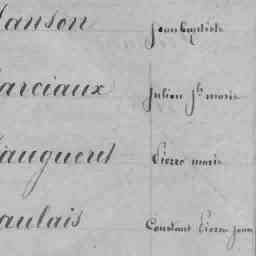 anson Jean Baptiste
arciaux Julien Jh marie
auguerel Pierre marie
aulais Constant Pierre Jean